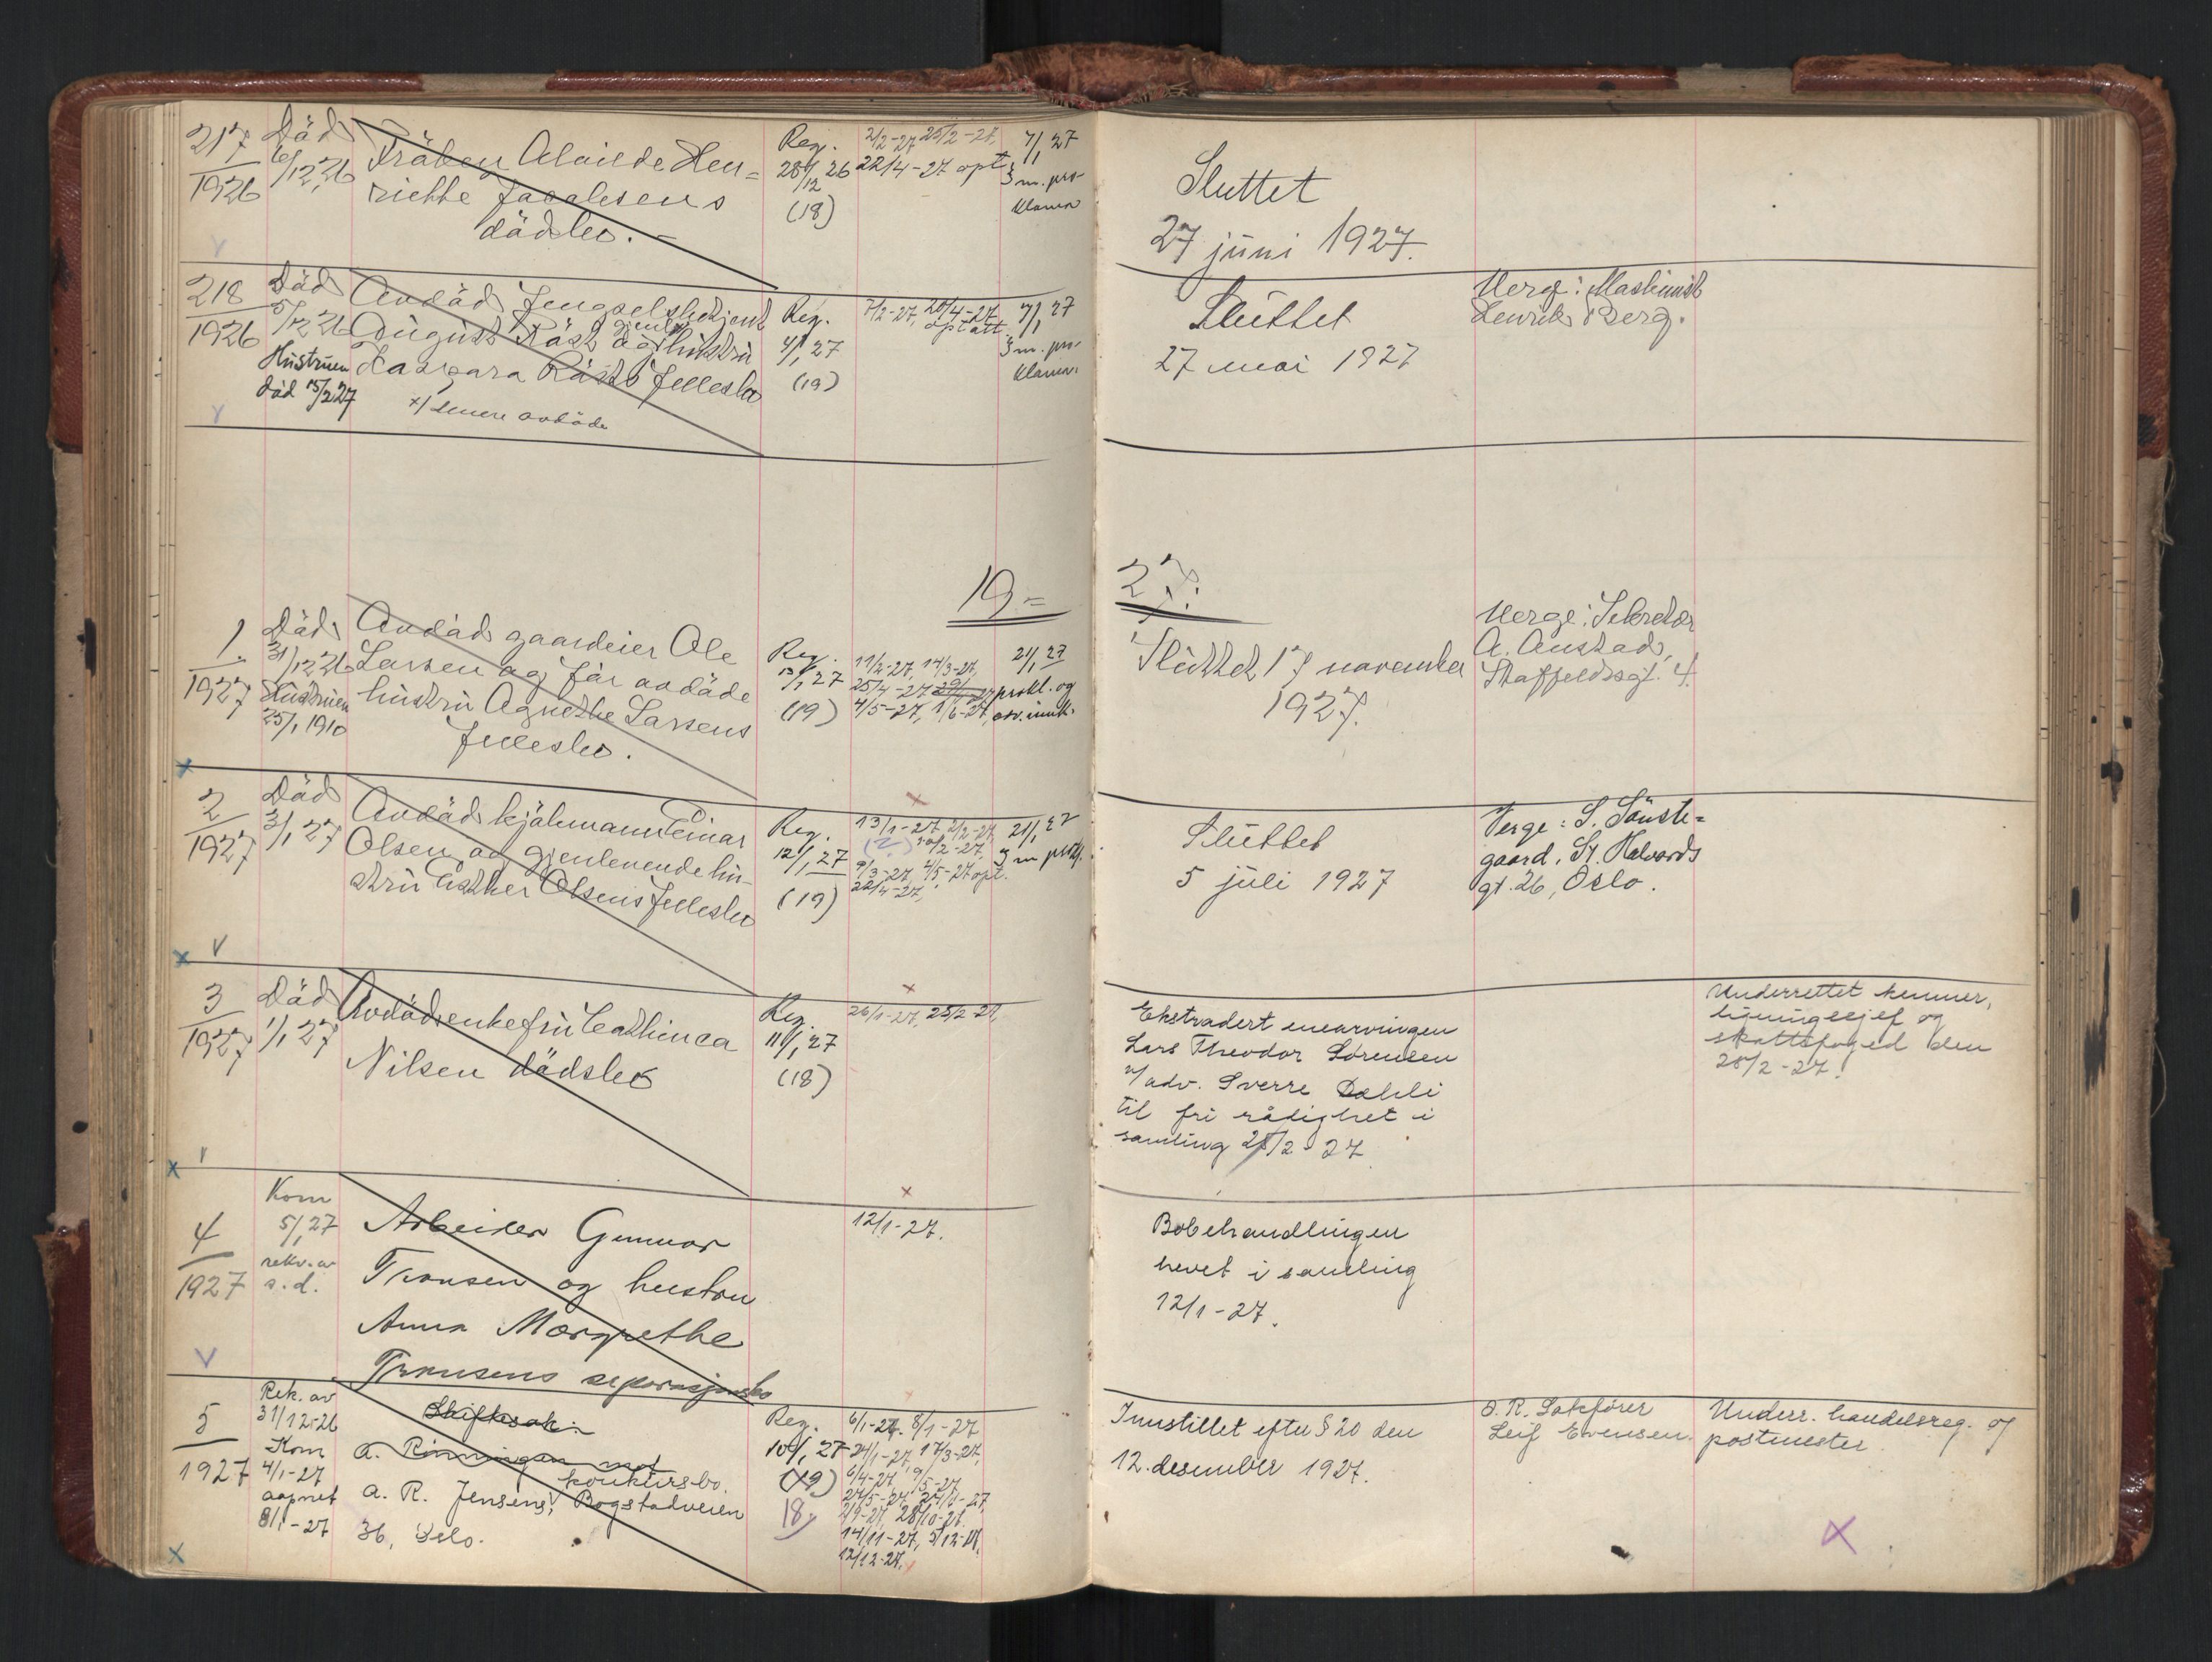 217
1926
Död
6/12 26
Fröken Alvilde Hen=
riette Jacobsens
dödsbo. –
Reg.
28/12 26
(18)
2/2-27 25/2-27,
22/4-27 opt
7/1 27
3 m. pro
klama
Sluttet
27 juni 1927.
218
1926
Död
5/12 26
Hustruen
död 15/2 27
Avdöd fengselsbetjent
August Röst og gjenlev. hustru
Kaspara Rösts fellesbo
x) senere avdöde
Reg.
4/1 27
(19)
7/2-27, 20/4-27
opt att.
7/1 27
3 m. pro
klama.
Sluttet
27 mai 1927
Verge: Maskinist
Henrik Berg.
19=
27.
1.
1927
Död
31/12 26
Hustruen
25/1 1910
Avdöd gaardeier Ole
Larsen og för avdöde
hustru Agnethe Larsens
fellesbo.
Reg.
13/1 27
(19)
11/2-27, 14/3-27,
25/4-27 29/4-27
4/5-27, 1/6-27,
21/1 27
prokl. og
arv. innk.
Sluttet 17 november
1927.
Verge: Sekretær
A. Austad,
Staffeldtsgt. 4.
2
1927
Död
3/1 27
Avdöd kjölmann Einar
Olsen og gjenlevende hu-
stru Esther Olsens fellesbo
Reg.
12/1 27
(19)
13/1-27, 2/2-27,
(?) 10/2-27,
9/3-27, 4/5-27 opt.
22/4-27,
21/1 27
3 m prokl.
Sluttet
5 juli 1927
Verge: S. Sönste=
gaard, St. Halvards
gt. 26, Oslo.
3
1927
Död
1/1 27
Avdöd enkefru Cathinca
Nilsen dödsbo
Reg.
11/1 27
(18)
26/1-27, 25/2-27
Ekstradert enearvingen
Lars Theodor Sørensen
v/adv. Sverre Dæhli
til fri rådighet i
samling 25/2-27.
Underrettet kemner,
ligningssjef og
skattefoged den
28/2-27.
4
1927
Kom
5/1 27
rekv. av
s.d.
Arbeider Gunnar
Fransen og hustru
Anna Margrethe
Fransens separasjonsbo
12/1-27.
Bobehandlingen
hevet i samling
12/1-27.
5
1927
Rek. av
31/12-26
Kom
4/1-27
aapnet
8/1-27
Skiftesak:
A. Rönningen mot
konkursbo.
A. R. Jensens, Bogstadveien
36, Oslo.
Reg.
10/1 27
(19)
18)
6/1-27. 8/1-27
24/1-27, 17/3-27,
6/4-27, 9/5-27,
27/5-27, 24/6-27,
2/9-27, 28/10-27.
14/11-27, 5/12-27,
12/12-27.
Innstillet efter § 20 den
12. desember 1927.
O. R. Sakförer
Leif Evensen.
Underr. handelsreg. og
postmester.